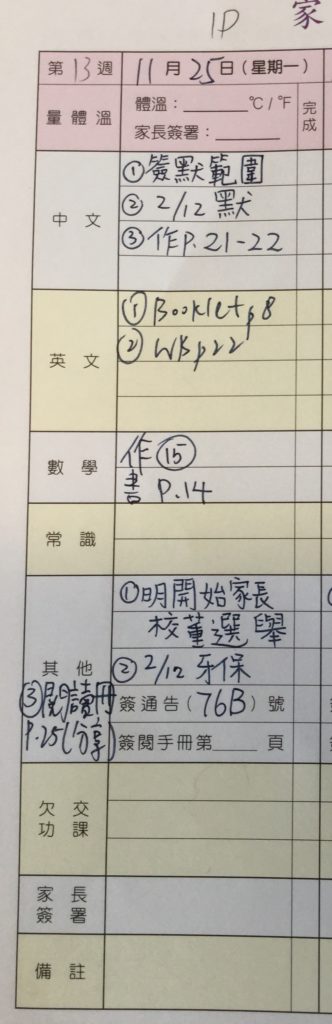 1D
家
第13週 11月25日(星期一)
量體溫 體溫：______°C/°F 完成
家長簽署：______
中文
①簽默範圍
②2/12默
③作P.21-22
英文
①Booklet p8
②WB p22
數學
作⑮
書P.14
常識
其他
①明開始家長
校董選舉
②2/12牙保
簽通告(76B)號
簽閱手冊第____頁
③閱讀冊
P.25(分享)
欠交
功課
家長
簽署
備註